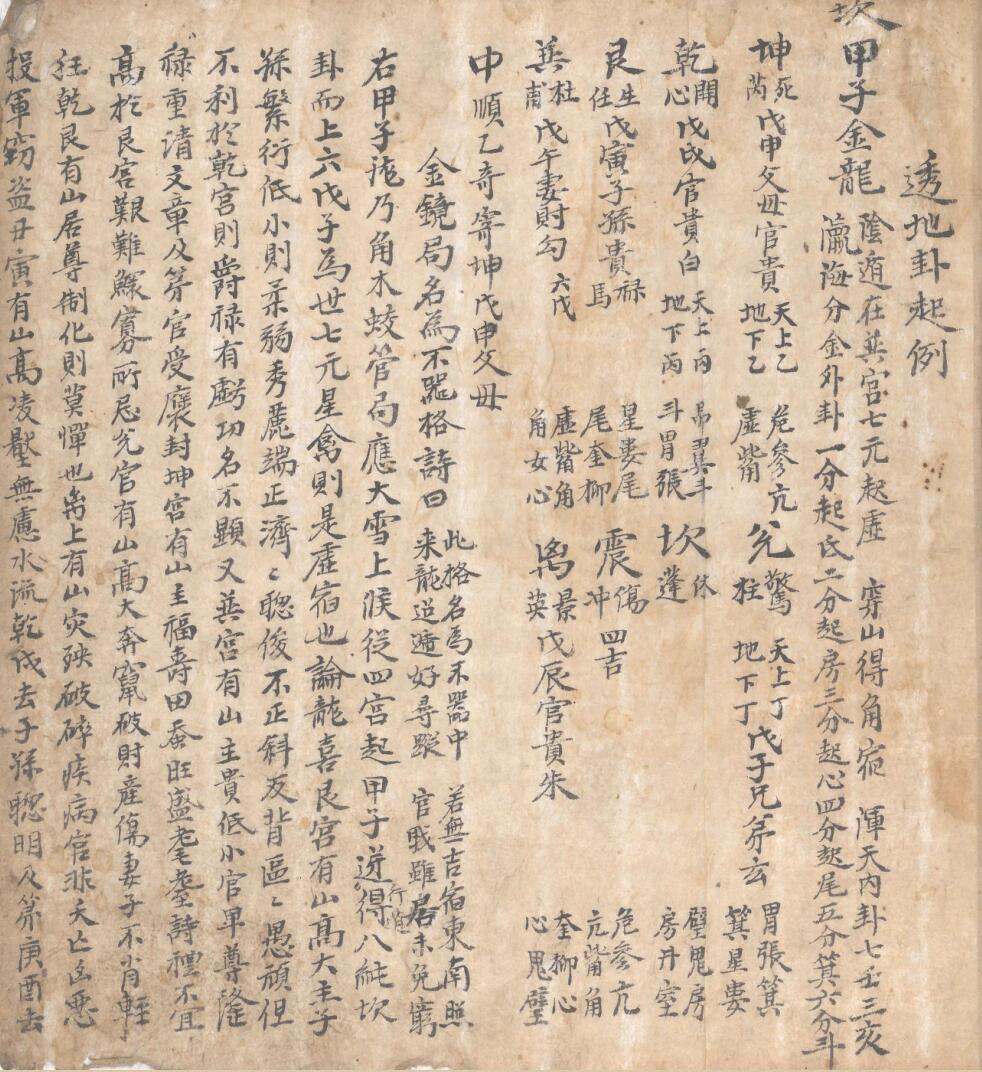 透地卦起例
坎甲子金龍 陰遁在巽宮七元起虛 穿山得角宿 渾天內卦七壬三亥
瀛海分金外卦一分起氐二分起房三分起心四分起尾五分箕六分斗
坤死芮戊申父母官貴 天上乙地下乙 危參亢虛觜 兌驚柱 天上丁地下丁戊子兄弟玄 胃張箕箕星婁
乾開心戊戌官貴白 天上丙地下丙 昴翼斗斗胃張 坎休蓬 壁鬼房房井室
艮生任戊寅子孫貴祿馬 星婁尾尾奎柳 震傷冲四吉 危參亢亢觜角
巽杜甫戊午妻財勾六戊 虛觜角角女心 离景英戊辰官貴朱 奎柳心心鬼壁
中順乙奇寄坤戊申父母
金鏡局名為不噐格詩曰 此格名為不器中 來龍逆遁好尋蹤 若無吉宿東南照 官戝雖居未免窮
右甲子龍乃角木蛟管局應大雪上候從四宮起甲子逆行筭得八純坎
卦而上六戊子為世七元星禽則是虛宿也論龍喜艮宮有山高大主子
孫繁衍低小則柔弱秀麗端正濟〻聰俊不正斜反背區〻愚頑但
不利於乾宮則爵祿有虧功名不顯又巽宮有山主貴低小官卑尊隆
祿重清文章及第官受褒封坤宮有山主福壽田蚕旺盛老耋詩禮不宜
高於艮宮艱難鰥寡所忌兌宮有山高大奔竄破財産傷妻子不肖輕
狂乾艮有山居尊制化則莫憚也离上有山灾殃破碎疾病官非夭亡凶惡
投軍竊盜丑寅有山高凌壓無慮水流乾戌去子孫聰明及第庚酉去